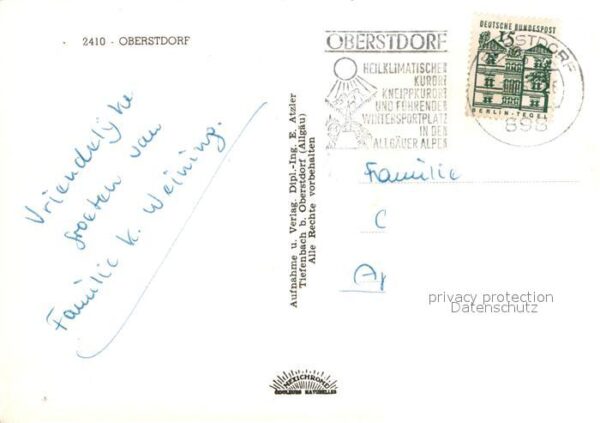 2410 - OBERSTDORF
Vriendelijke
groeten van
Familie K. Weining.
Aufnahme u. Verlag Dipl.-Ing. E. Atzler
Tiefenbach b. Oberstdorf (Allgäu)
Alle Rechte vorbehalten
OBERSTDORF
HEILKLIMATISCHER
KURORT
KNEIPPKURORT
UND FÜHRENDER
WINTERSPORTPLATZ
IN DEN
ALLGÄUER ALPEN
DEUTSCHE BUNDESPOST
15
BERLIN-TEGEL
STDORF
898
Familie
C
privacy protection
Datenschutz
MEXICHROME
COULEURS NATURELLES